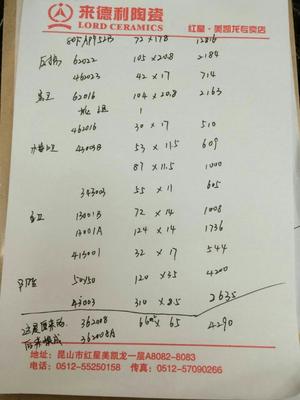 来德利陶瓷
LORD CERAMICS
红星·美凯龙专卖店
72 × 178 12816
62022 105 × 20.8 2184
462023 42 × 17 714
62016 104 × 20.8 2163
1
462016 30 × 17 510
43003B 53 × 11.5 609
87 × 11.5 1000
343003 55 × 11 605
13001B 72 × 14 1008
13001A 124 × 14 1736
413001 32 × 17 544
50150 120 × 35 4200
43003 310 × 8.5 2635
362008 66m² × 65 4290
362008A
地址:昆山市红星美凯龙一厅A8082-8083
电话:0512-55250158 传真:0512-57090266